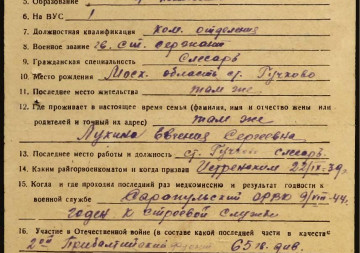 5. Образование
6. На ВУС 1
7. Должностная квалификация ком. отделения
8. Военное звание ст. сержант
9. Гражданская специальность Слесарь
10. Место рождения Моск. область ст. Гучково
11. Последнее место жительства там же
12. Где проживает в настоящее время семья (фамилия, имя и отчество жены или
родителей и точный их адрес) там же
Лукина Евгения Сергеевна
13. Последнее место работы и должность ст. Гучково слесарь.
14. Каким райгорвоенкоматом и когда призван Истренским 22/IX-39г.
15. Когда и где проходил последний раз медкомиссию и результат годности к
военной службе Сарапульский ОРВК 9/VIII-44.
годен к строевой службе
16. Участие в Отечественной войне (в составе какой последней части и в качестве
2ой Прибалтийский 65 див.